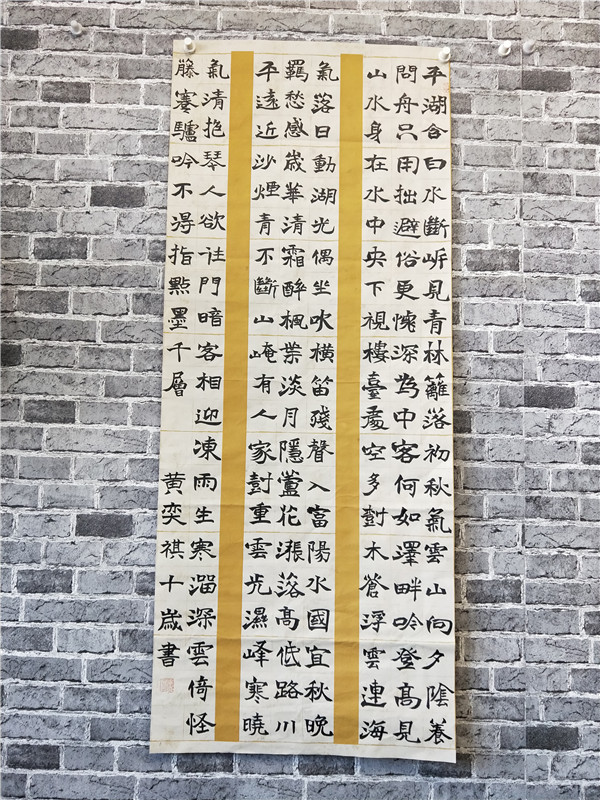 平湖含白水斷岸見青林籬落初秋氣雲山向夕陰養
問舟只用拙避俗更愧深為中客何如澤畔吟登高見
山水身在水中央下視樓臺處空多對木蒼浮雲連海
氣落日動湖光偶坐吹橫笛殘聲入富陽水國宜秋晚
羈愁感歲華清霜醉楓葉淡月隱蘆花漲落高低路川
平遠近沙煙青不斷山崦有人家對重雲光濕峰寒曉
氣清抱琴人欲往門暗客相迎凍雨生寒溜深雲倚怪
藤蹇驢吟不得指點墨千層
黃奕祺十歲書